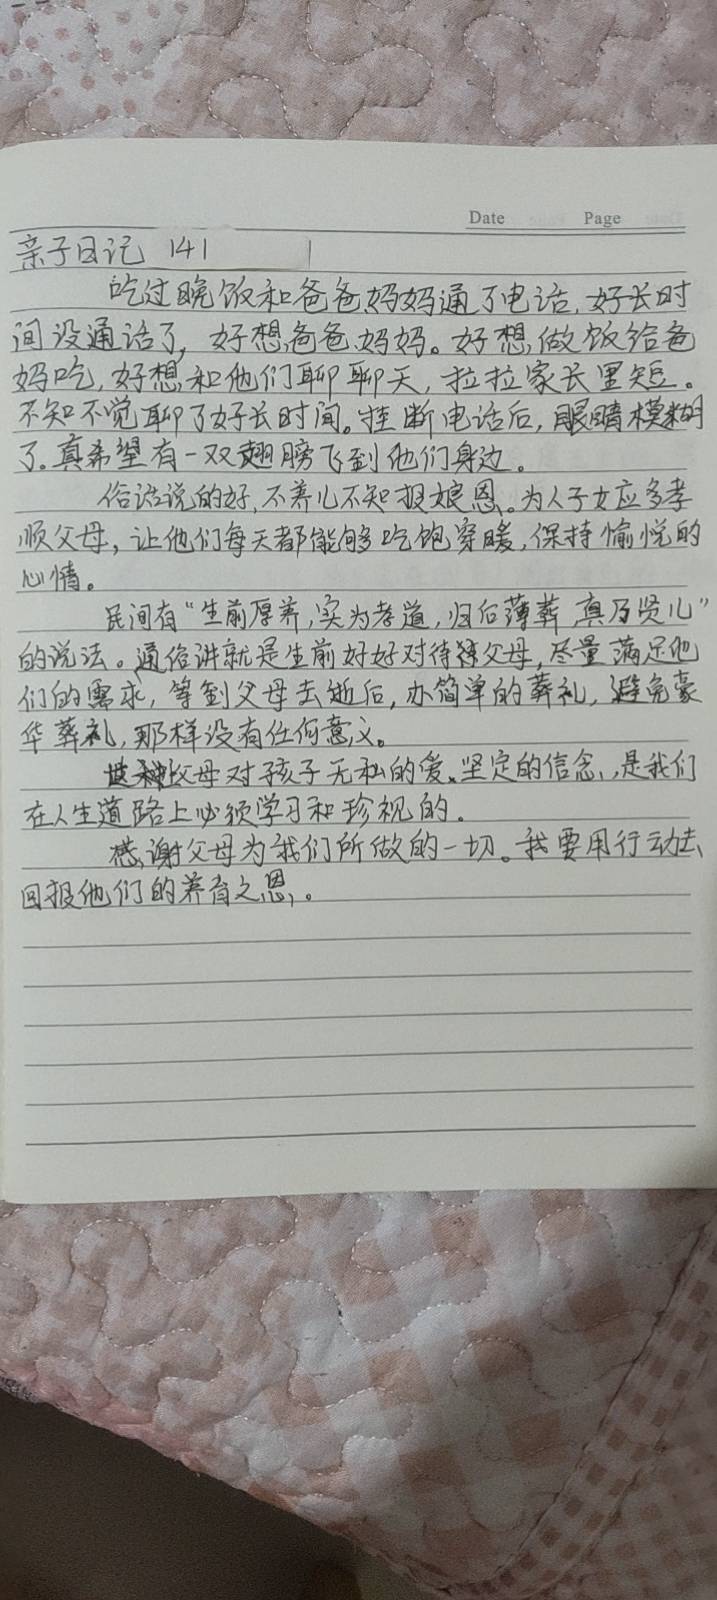 Date Page
亲子日记 141
吃过晚饭和爸爸妈妈通了电话，好长时
间没通话了，好想爸爸妈妈。好想做饭给爸
妈吃，好想和他们聊聊天，拉拉家长里短。
不知不觉聊了好长时间。挂断电话后，眼睛模糊
了。真希望有一双翅膀飞到他们身边。
俗话说的好，不养儿不知报娘恩。为人子女应多孝
顺父母，让他们每天都能够吃饱穿暖，保持愉悦的
心情。
民间有“生前厚养，实为孝道，归后薄葬，真乃贤儿”
的说法。通俗讲就是生前好好对待父母，尽量满足他
们的需求，等到父母去逝后，办简单的葬礼，避免豪
华葬礼，那样没有任何意义。
父母对孩子无私的爱、坚定的信念，是我们
在人生道路上必须学习和珍视的。
感谢父母为我们所做的一切。我要用行动去
回报他们的养育之恩。